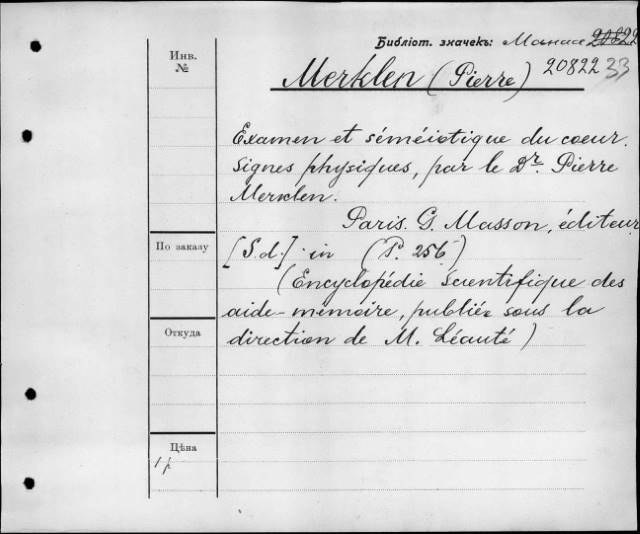 Библіот. значекъ:
Инв.
№
Merklen (Pierre) 20822 33
Examen et séméiotique du coeur.
Signes physiques, par le Dr. Pierre
Merklen.
Paris. G. Masson, éditeur
По заказу
[S.d.] in (P. 256)
(Encyclopédie scientifique des
aide-mémoire, publiée sous la
Откуда
direction de M. Léauté)
Цѣна
1 р